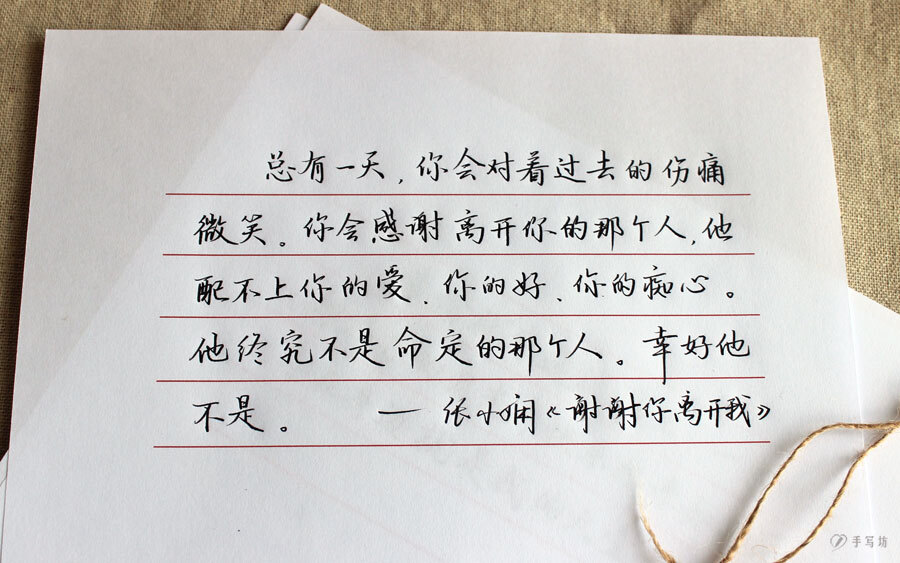 总有一天，你会对着过去的伤痛
微笑。你会感谢离开你的那个人，他
配不上你的爱、你的好、你的痴心。
他终究不是命定的那个人。幸好他
不是。 — 张小娴《谢谢你离开我》
手写坊